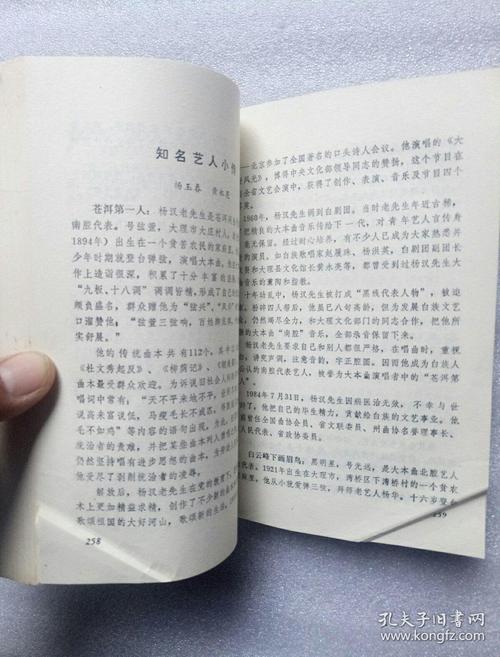 知名艺人小传
杨玉春
苍洱第一人：杨汉老先生是苍洱
南腔代表。号弦童，大理市大庄村人。
1894年）出生在一个贫苦农民的家庭
少年时期就登台弹弦，演唱大本曲
作上造诣很深，积累了十分丰富的
“九板、十八调”调调皆精，形成了自己
颇负盛名，群众赠他为“弦兴”、
口溜赞他：“弦童三弦响，百
实好康。”
他的传统曲本共有112个，其中
《杜文秀起义》、《柳荫记》、
曲本最受群众欢迎。为诉说旧社会人
唱词中常有：“天不平来地不平，
说高来富说低，马瘦毛长不成
毛”等内容的语句出现，为
治者的责难，并把某些曲本列入
仍然坚持唱有进步思想的曲本，
他受尽了剥削统治者的凌辱。
解放后，杨汉老先生在党的文艺
木上更加精益求精，创作了不少新的
歌颂祖国的大好河山，歌颂新的生活。
258
北京参加了全国著名的口头诗人会议。他演唱的《大
风光》，博得中央文化部领导同志的赞扬，这个节目在
省文艺会演中，获得了创作、表演、音乐及节目四个
1960年，杨汉先生调到白剧团。当时老先生年近古稀，
的大本曲音乐传给下一代，对青年艺人言传身
毫无保留。经过耐心培养，有不少人已成为大家熟悉
的演员。如白族歌唱家赵履珠、杨洪英，白剧团副团长
和大理县文化馆长黄永亮等，都曾受到过杨汉先生
音乐的熏陶和指教。
十年动乱中，杨汉先生被打成“黑线代表人物”，被迫
。粉碎四人帮后，他虽已八旬高龄，但为发展白族文艺
仍然竭尽全力，和大理文化部门的同志合作，把他所
的大本曲“南腔”音乐，全部录音保留下来。
杨汉先生要求自己和别人都很严格，在唱曲时，重视
，讲究声调，注意音韵，字正腔圆。因而他成为白族人
认的南腔代表艺人，被誉为大本曲演唱者中的“苍洱第
1984年7月31日，杨汉先生因病医治无效，不幸与世
他把自己的毕生精力，贡献给白族的文艺事业。他
曾任全国曲协会员、省文联委员、州曲协名誉理事长、
人民代表、省政协委员。
白云峰下画眉鸟：黑明星，号光远，是大本曲北腔艺人
代表。1921年出生在大理市，湾桥区下湾桥村的一个贫农
家庭里，他从小就爱弹三弦，拜师老艺人杨华。十六岁登台
259
孔夫子旧书网
www.kongfz.com